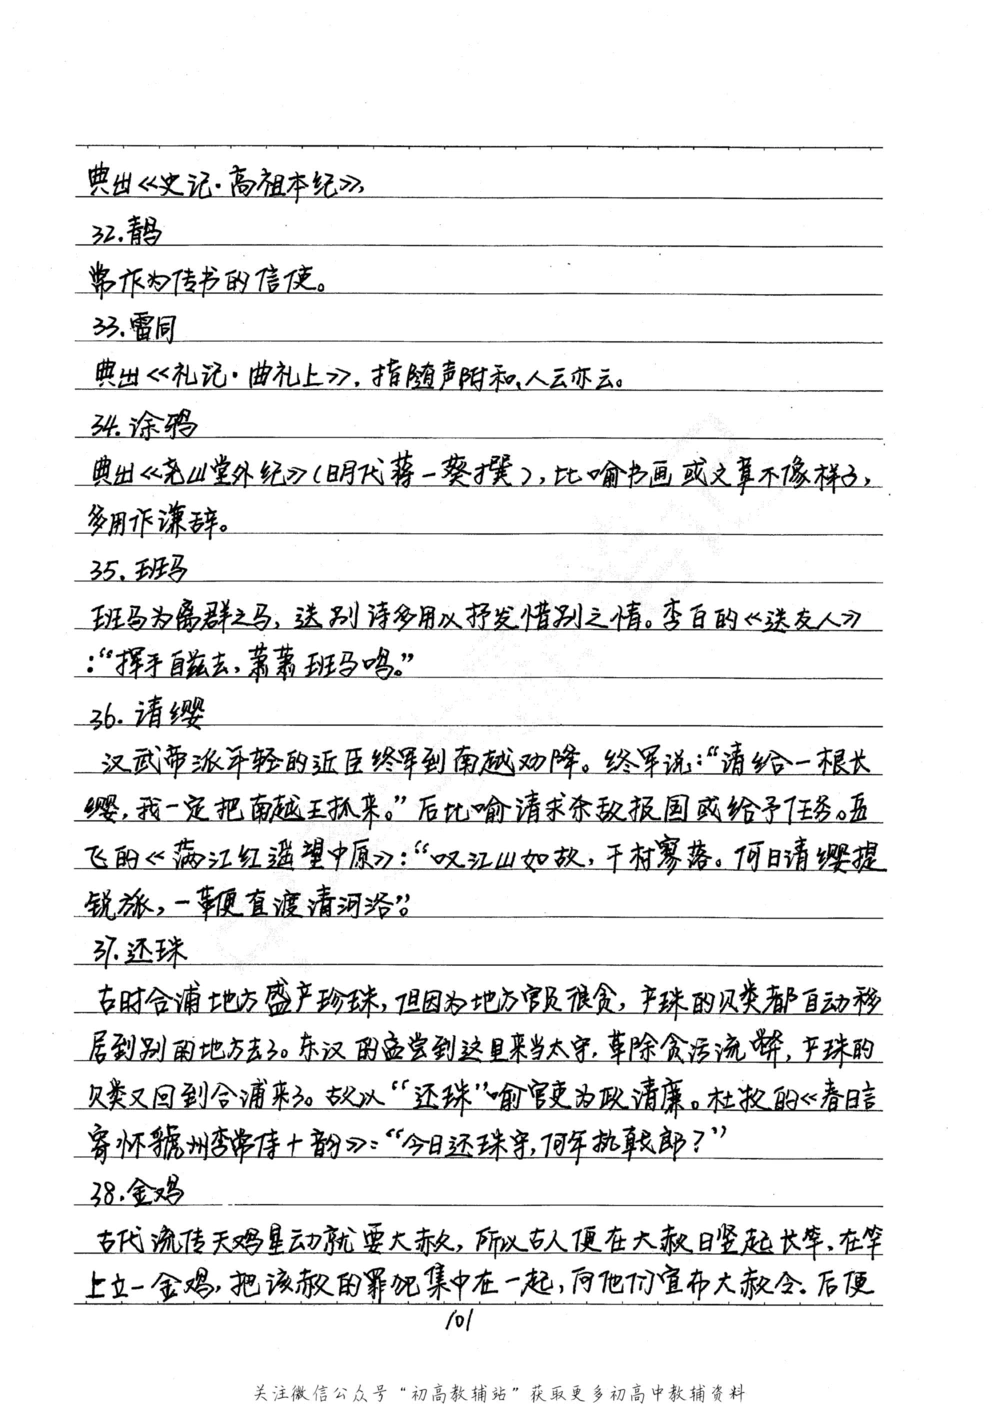 典出《史记·高祖本纪》。
32.青鸟
常作为传书的信使。
33.雷同
典出《礼记·曲礼上》，指随声附和、人云亦云。
34.涂鸦
典出《尧山堂外纪》(明代蒋一葵撰)，比喻书画或文章不像样子，
多用作谦辞。
35.班马
班马为离群之马，送别诗多用以抒发惜别之情。李白的《送友人》
：“挥手自兹去，萧萧班马鸣。”
36.请缨
汉武帝派年轻的近臣终军到南越劝降。终军说：“请给一根长
缨，我一定把南越王抓来。”后比喻请求杀敌报国或给予任务。岳
飞的《满江红遥望中原》：“叹江山如故，千村寥落。何日请缨提
锐旅，一鞭直渡清河洛”。
37.还珠
古时合浦地方盛产珍珠，但因为地方官员很贪，产珠的贝类都自动移
居到别的地方去了。东汉的孟尝到这里来当太守，革除贪污流弊，产珠的
贝类又回到合浦来了。故以“还珠”喻官吏为政清廉。杜牧的《春日言
寄怀虢州李常侍十韵》：“今日还珠守，何年执戟郎？”
38.金鸡
古代流传天鸡星动就要大赦，所以古人便在大赦日竖起长竿，在竿
上立一金鸡，把该赦的罪犯集中在一起，向他们宣布大赦令。后便
101
关注微信公众号“初高教辅站”获取更多初高中教辅资料